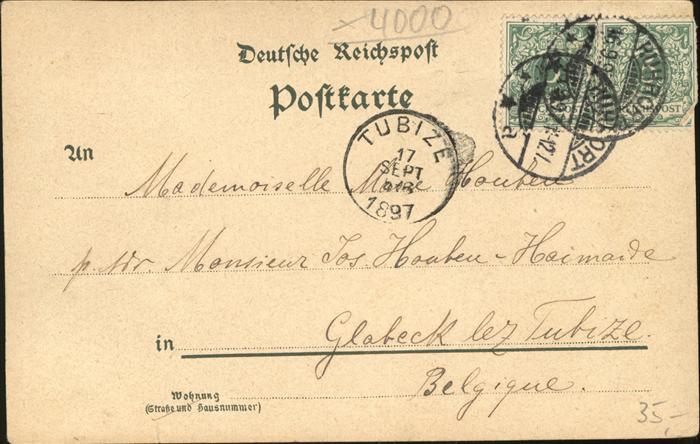 4000
Deutsche Reichspost
Postkarte
TUBIZE
17
SEPT
1897
RUHRORT
An
Mademoiselle Marie Houben
p. adr. Monsieur Jos Houben-Haimarde
in Glabeck lez Tubize.
Belgique.
Wohnung
(Straße und Hausnummer)
35,-